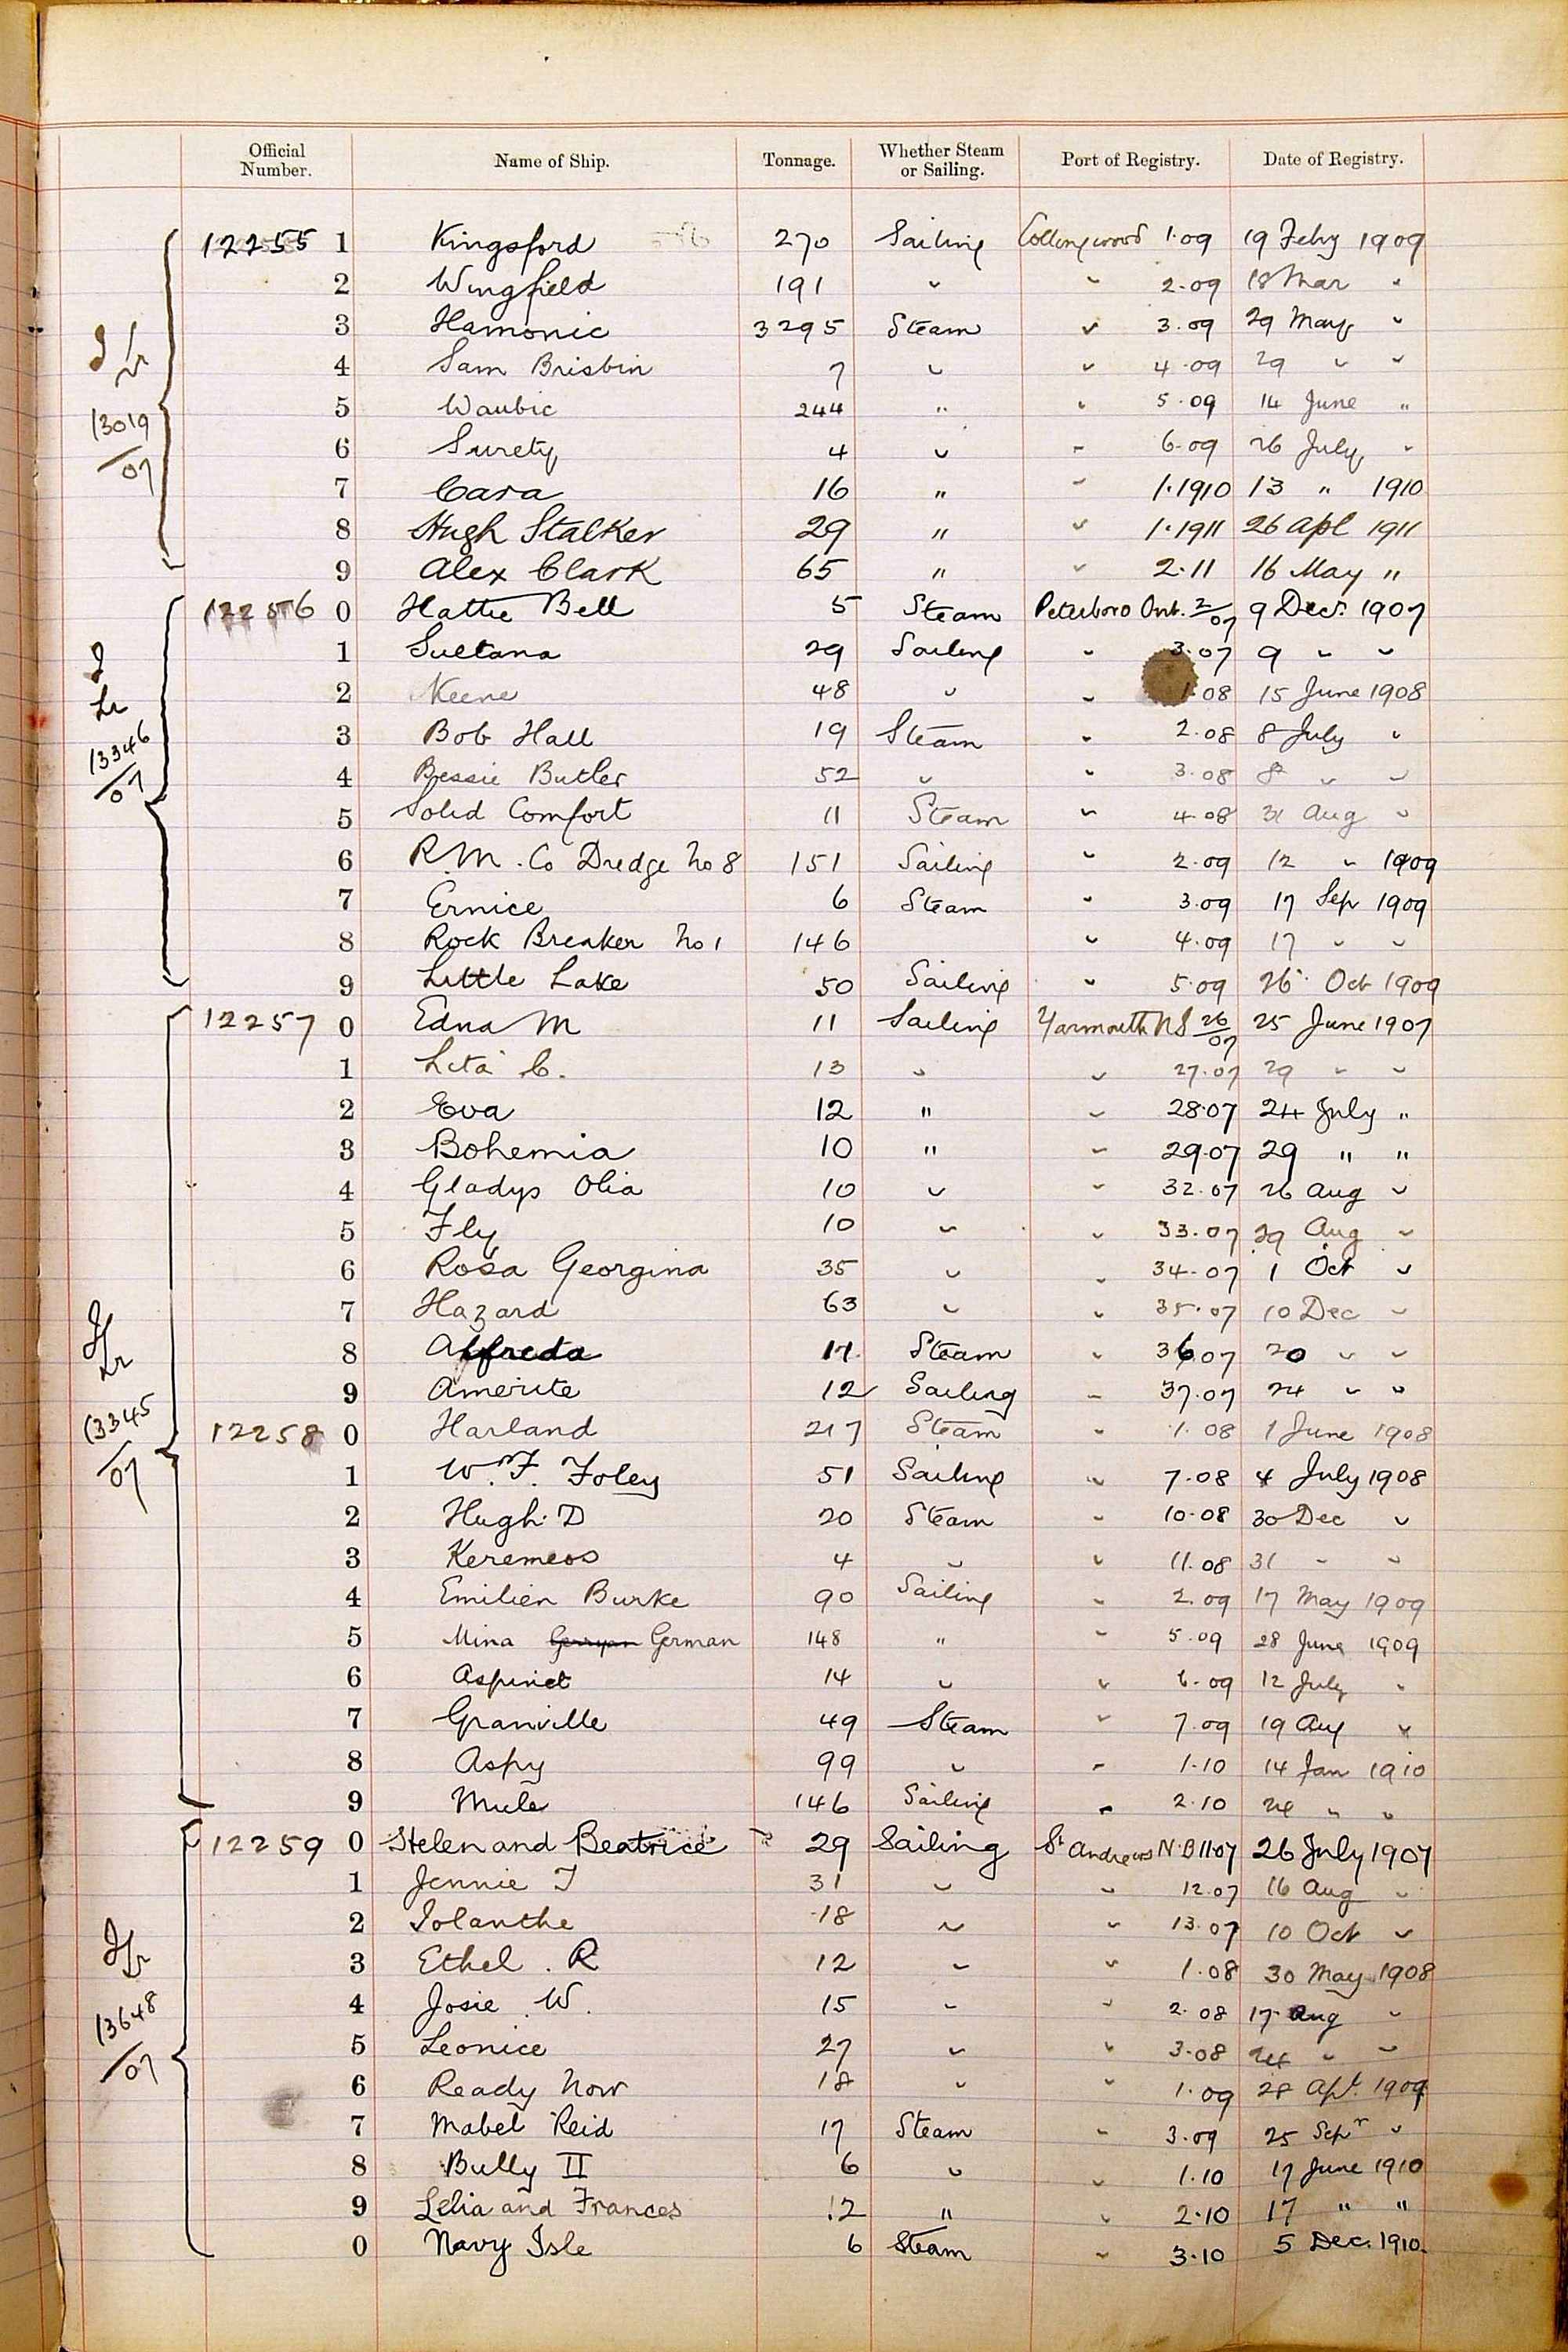 Official Number. Name of Ship. Tonnage. Whether Steam or Sailing. Port of Registry. Date of Registry.
12255 1 Kingsford 270 Sailing Collingwood 1.09 19 Feby 1909
2 Wingfield 191 " " 2.09 18 Mar "
3 Hamonic 3295 Steam " 3.09 29 May "
4 Sam Brisbin 7 " " 4.09 29 " "
5 Waubic 244 " " 5.09 14 June "
6 Surety 4 " " 6.09 26 July "
7 Cara 16 " " 1.1910 13 " 1910
8 Hugh Stalker 29 " " 1.1911 26 Apl 1911
9 Alex Clark 65 " " 2.11 16 May "
13019/07
12256 0 Hattie Bell 5 Steam Peterboro Ont. 2/07 9 Decr. 1907
1 Sultana 29 Sailing " 3.07 9 " "
2 Keene 48 " " 1.08 15 June 1908
3 Bob Hall 19 Steam " 2.08 8 July "
4 Bessie Butler 52 " " 3.08 8 " "
5 Solid Comfort 11 Steam " 4.08 31 Aug "
6 R.M. Co Dredge No 8 151 Sailing " 2.09 12 " 1909
7 Ernice 6 Steam " 3.09 17 Sep 1909
8 Rock Breaker No 1 146 " 4.09 17 " "
9 Little Lake 50 Sailing " 5.09 26 Oct 1909
13346/07
12257 0 Edna M 11 Sailing Yarmouth NS 26/07 25 June 1907
1 Lita C. 13 " " 27.07 29 " "
2 Eva 12 " " 28.07 24 July "
3 Bohemia 10 " " 29.07 29 " "
4 Gladys Olia 10 " " 32.07 26 Aug "
5 Fly 10 " " 33.07 29 Aug "
6 Rosa Georgina 35 " " 34.07 1 Oct "
7 Hazard 63 " " 35.07 10 Dec "
8 Alfreda 17 Steam " 36.07 20 " "
9 Amerite 12 Sailing " 37.07 24 " "
12258 0 Harland 217 Steam " 1.08 1 June 1908
1 W. F. Foley 51 Sailing " 7.08 4 July 1908
2 Hugh D 20 Steam " 10.08 30 Dec "
3 Keremeos 4 " " 11.08 31 " "
4 Emilien Burke 90 Sailing " 2.09 17 May 1909
5 Mina German 148 " " 5.09 28 June 1909
6 Aspinet 14 " " 6.09 12 July "
7 Granville 49 Steam " 7.09 19 Aug "
8 Aspy 99 " " 1.10 14 Jan 1910
9 Mule 146 Sailing " 2.10 24 " "
13345/07
12259 0 Helen and Beatrice 29 Sailing St Andrews N.B 11.07 26 July 1907
1 Jennie T 31 " " 12.07 16 Aug "
2 Iolanthe 18 " " 13.07 10 Oct "
3 Ethel . R 12 " " 1.08 30 May 1908
4 Josie W. 15 " " 2.08 17 Aug "
5 Leonice 27 " " 3.08 24 " "
6 Ready Now 18 " " 1.09 28 Apl. 1909
7 Mabel Reid 17 Steam " 3.09 25 Sepr "
8 Bully II 6 " " 1.10 17 June 1910
9 Lelia and Frances 12 " " 2.10 17 " "
0 Navy Isle 6 Steam " 3.10 5 Dec. 1910.
13648/07